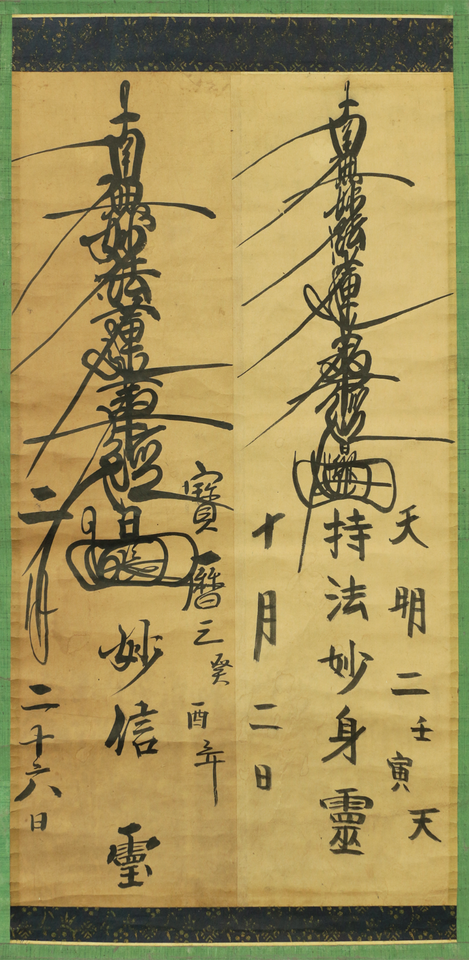 天明二壬寅天
南無妙法蓮華經
持法妙身靈
十月二日
寳暦三癸酉年
南無妙法蓮華經
妙信霊
二月二十六日